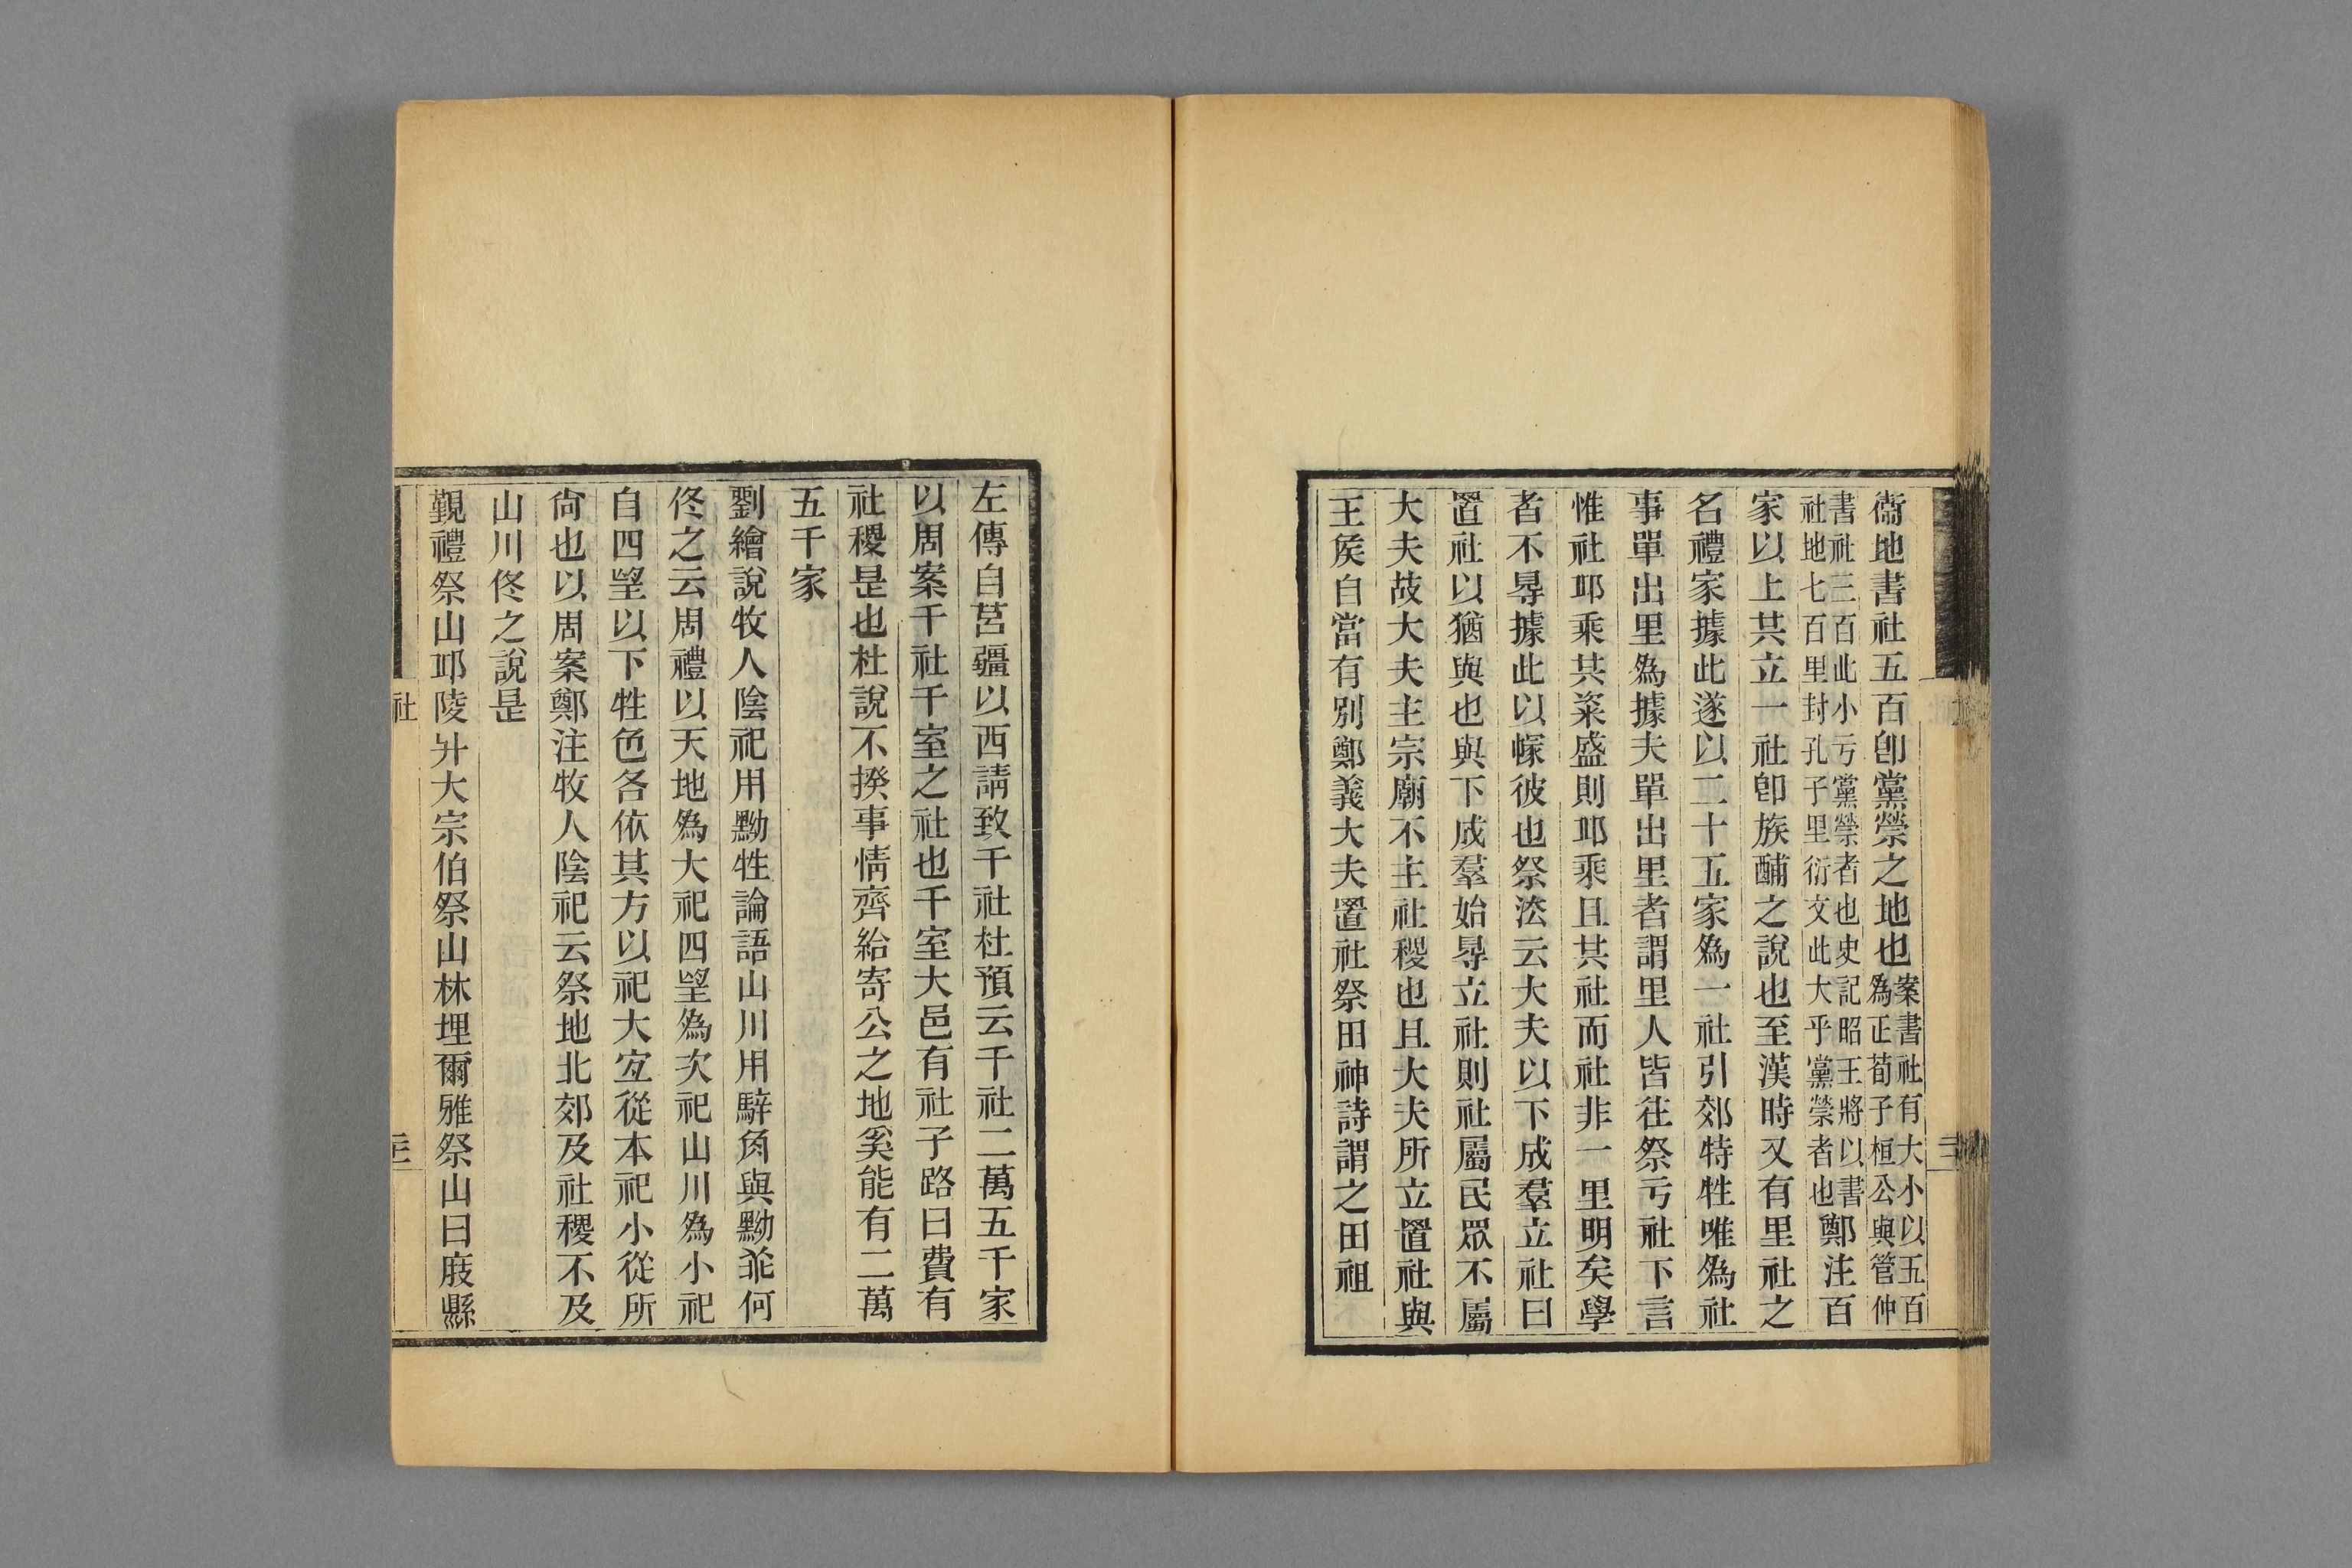 衞地書社五百卽黨榮之地也案書社有大小以五百
爲正荀子桓公與管仲
書社三百此小亏黨榮者也史記昭王將以書
社地七百里封孔子里衍文此大乎黨榮者也鄭注百
家以上共立一社卽族酺之說也至漢時又有里社之
名禮家據此遂以二十五家爲一社引郊特牲唯爲社
事單出里爲據夫單出里者謂里人皆往祭亏社下言
惟社丘乘共粢盛則丘乘且共社而社非一里明矣學
者不得據此以㡓彼也祭法云大夫以下成羣立社曰
置社以猶與也與下成羣始得立社則社屬民眾不屬
大夫故大夫主宗廟不主社稷也且大夫所立置社與
王矦自當有別鄭義大夫置社祭田神詩謂之田祖
左傳自莒疆以西請致千社杜預云千社二萬五千家
以周案千社千室之社也千室大邑有社子路曰費有
社稷是也杜說不揆事情齊給寄公之地奚能有二萬
五千家
劉繪說牧人陰祀用黝牲論語山川用騂角與黝乖何
佟之云周禮以天地爲大祀四望爲次祀山川爲小祀
自四望以下牲色各依其方以祀大宜從本祀小從所
尙也以周案鄭注牧人陰祀云祭地北郊及社稷不及
山川佟之說是
覲禮祭山丘陵升大宗伯祭山林埋爾雅祭山曰庪縣
社
三